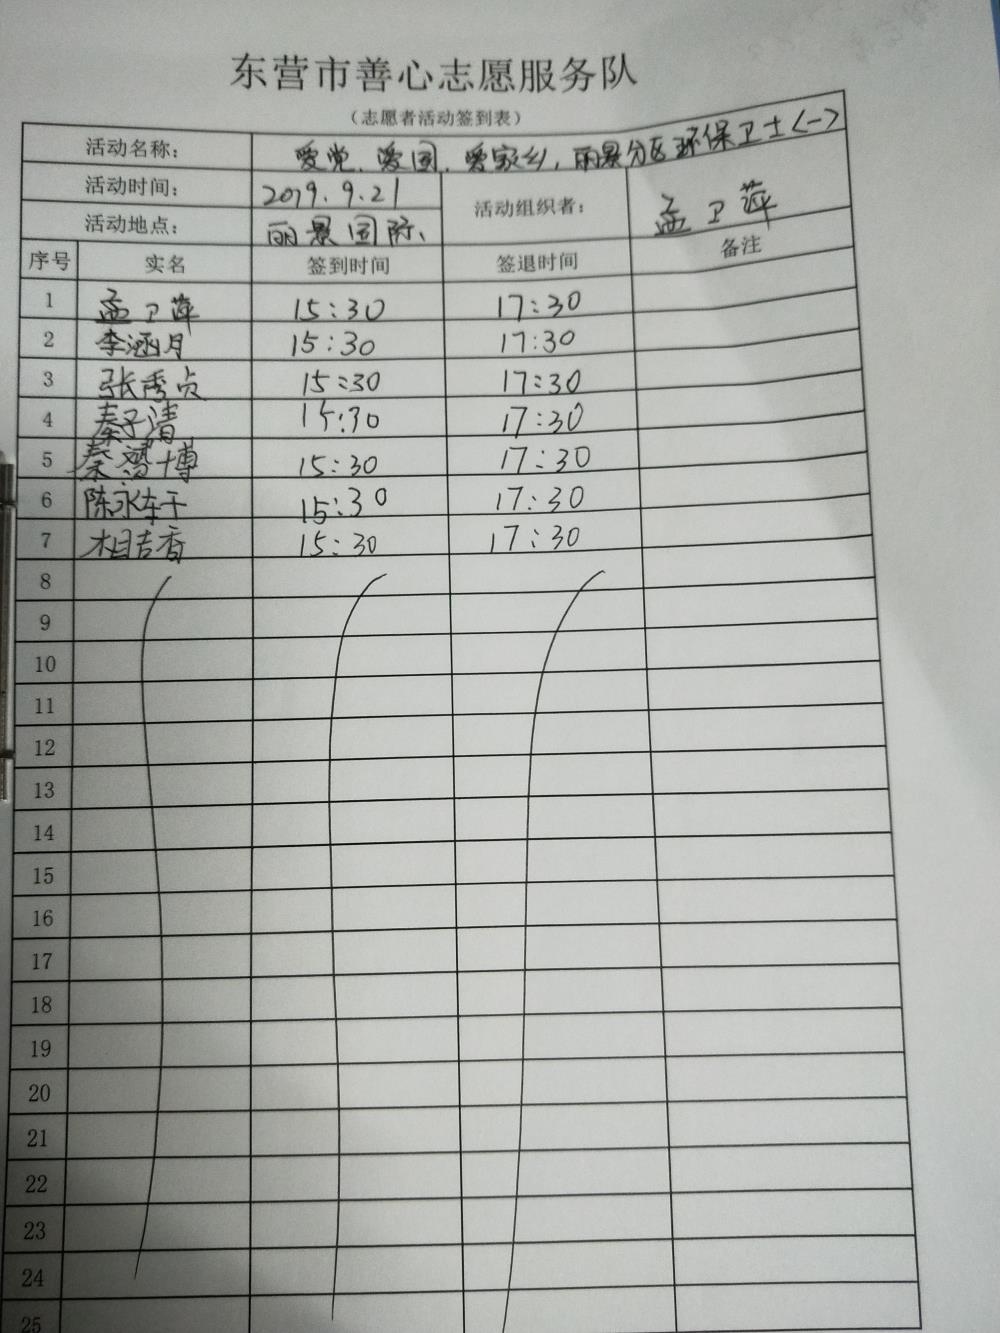 东营市善心志愿服务队
（志愿者活动签到表）
活动名称： 爱党、爱国、爱家乡，丽景分区环保卫士<一>
活动时间： 2019.9.21 活动组织者： 孟卫萍
活动地点： 丽景国际、
序号 实名 签到时间 签退时间 备注
1 孟卫萍 15:30 17:30
2 李涵月 15:30 17:30
3 张秀贞 15:30 17:30
4 秦子清 15:30 17:30
5 秦 博 15:30 17:30
6 陈永轩 15:30 17:30
7 相吉香 15:30 17:30
8
9
10
11
12
13
14
15
16
17
18
19
20
21
22
23
24
25